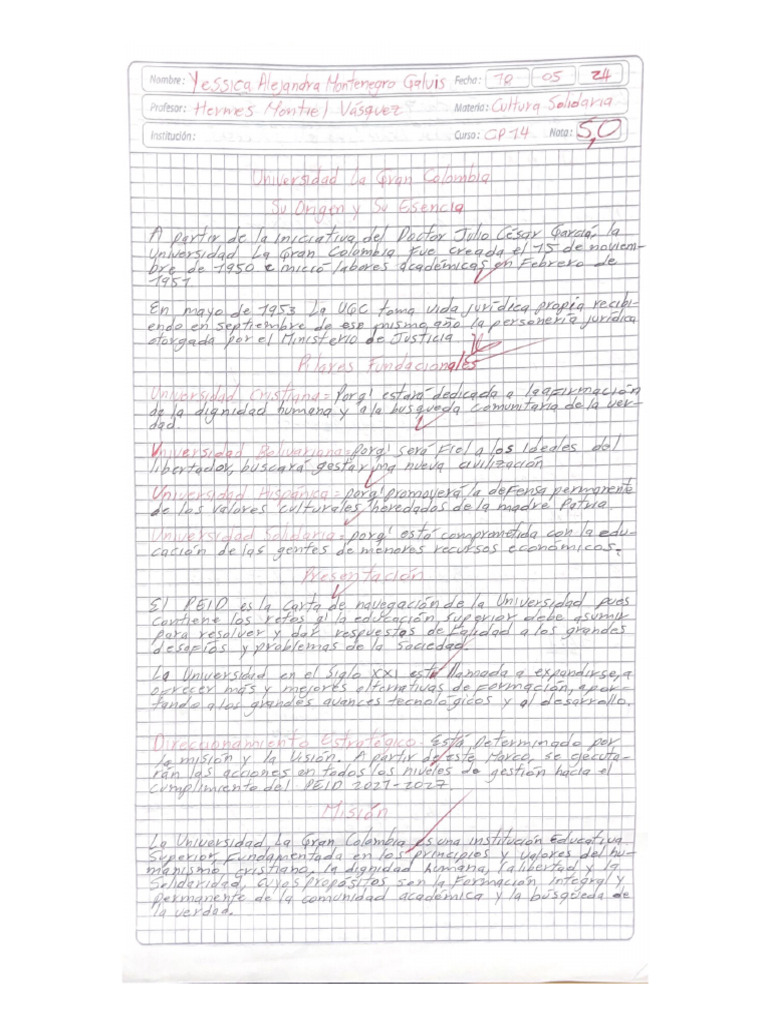 Nombre: Yessica Alejandra Montenegro Galvis Fecha: 18 05 24
Profesor: Hermes Montiel Vásquez Materia: Cultura Solidaria
Institución: Curso: GP-14 Nota: 5,0
Universidad La Gran Colombia
Su Origen y Su Esencia
A partir de la iniciativa del Doctor Julio César García, la
Universidad La Gran Colombia fue creada el 15 de noviem-
bre de 1950 e inició labores académicas en Febrero de
1951
En mayo de 1953 La UGC toma vida jurídica propia recibi-
endo en septiembre de ese mismo año la personería jurídica
otorgada por el Ministerio de Justicia
Pilares Fundacionales
Universidad Cristiana = Porq' estará dedicada a la afirmación
de la dignidad humana y a la busqueda comunitaria de la ver-
dad.
Universidad Bolivariana = porq' será Fiel a los ideales del
libertador, buscará gestar una nueva civilización
Universidad Hispánica = porq' promoverá la defensa permanente
de los valores culturales heredados de la madre Patria
Universidad Solidaria = porq' está comprometida con la edu-
cación de las gentes de menores recursos económicos.
Presentación
El PEID es la carta de navegación de la Universidad pues
contiene los retos q' la educación superior debe asumir
para resolver y dar respuestas de Calidad a los grandes
desafíos y problemas de la sociedad.
La Universidad en el Siglo XXI está llamada a expandirse, a
ofrecer más y mejores alternativas de Formación, apor-
tando a los grandes avances tecnológicos y al desarrollo.
Direccionamiento Estratégico- Está Determinado por
la misión y la Visión. A partir de este Marco, se ejecuta-
rán las acciones en todos los niveles de gestión hacia el
cumplimiento del PEID 2021-2027.
Misión
La Universidad La Gran Colombia es una institución Educativa
Superior, Fundamentada en los principios y valores del hu-
manismo, cristiano, la dignidad humana, la libertad y la
Solidaridad, cuyos propósitos son la Formación integral y
permanente de la comunidad académica y la búsqueda de
la verdad.